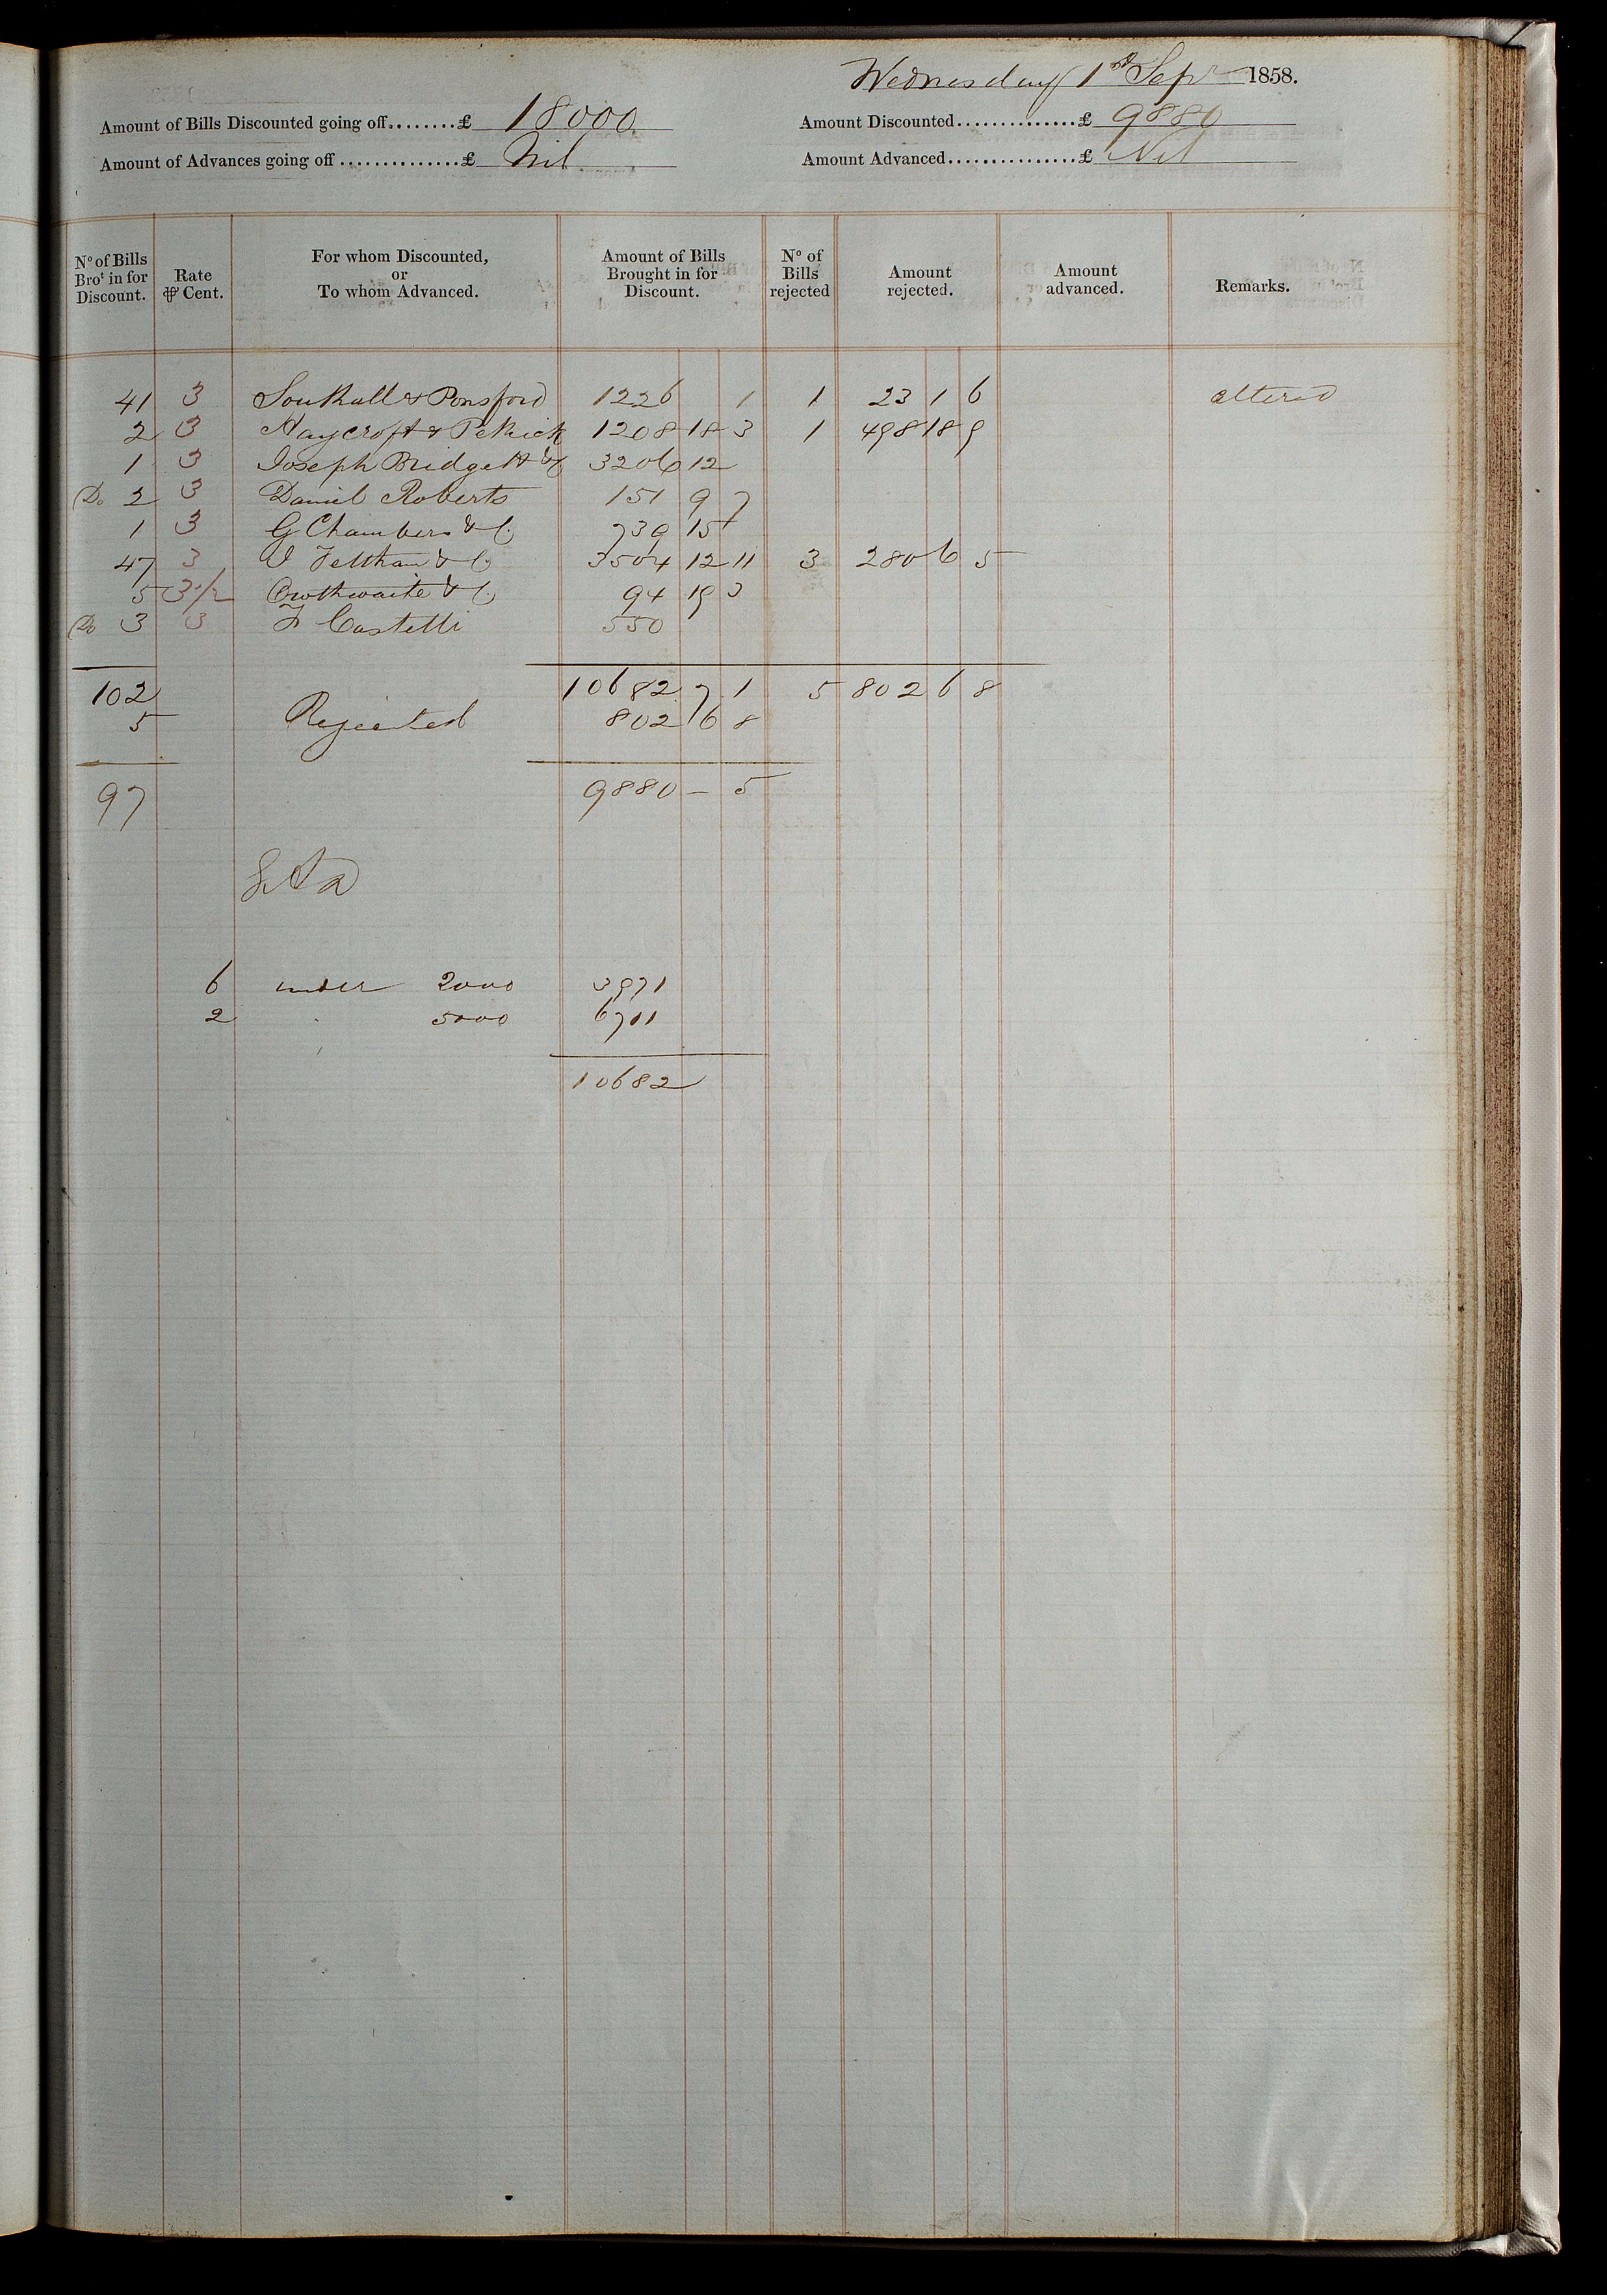 Wednesday 1st Sepr 1858.
Amount of Bills Discounted going off........£ 18000 Amount Discounted..............£ 9880
Amount of Advances going off ..............£ Nil Amount Advanced...............£ Nil
No of Bills Brot in for Discount. Rate ⅌ Cent. For whom Discounted, or To whom Advanced. Amount of Bills Brought in for Discount. No of Bills rejected Amount rejected. Amount advanced. Remarks.
41 3 Southall & Ponsford 1226 1 1 23 1 6 altered
2 3 Haycroft & Pethick 1208 18 3 1 498 18 9
1 3 Joseph Bridgett & Co 3206 12
Do 2 3 Daniel Roberts 151 9 7
1 3 G Chambers & Co. 739 15
47 3 J Feltham & Co 3504 12 11 3 280 6 5
5 3 1/2 Crosthwaite & Co. 94 19 3
Do 3 3 F Castelli 550
102 10682 7 1 5 802 6 8
5 Rejected 802 6 8
97 9880 – 5
6 under 2000 3971
2 " 5000 6711
10682